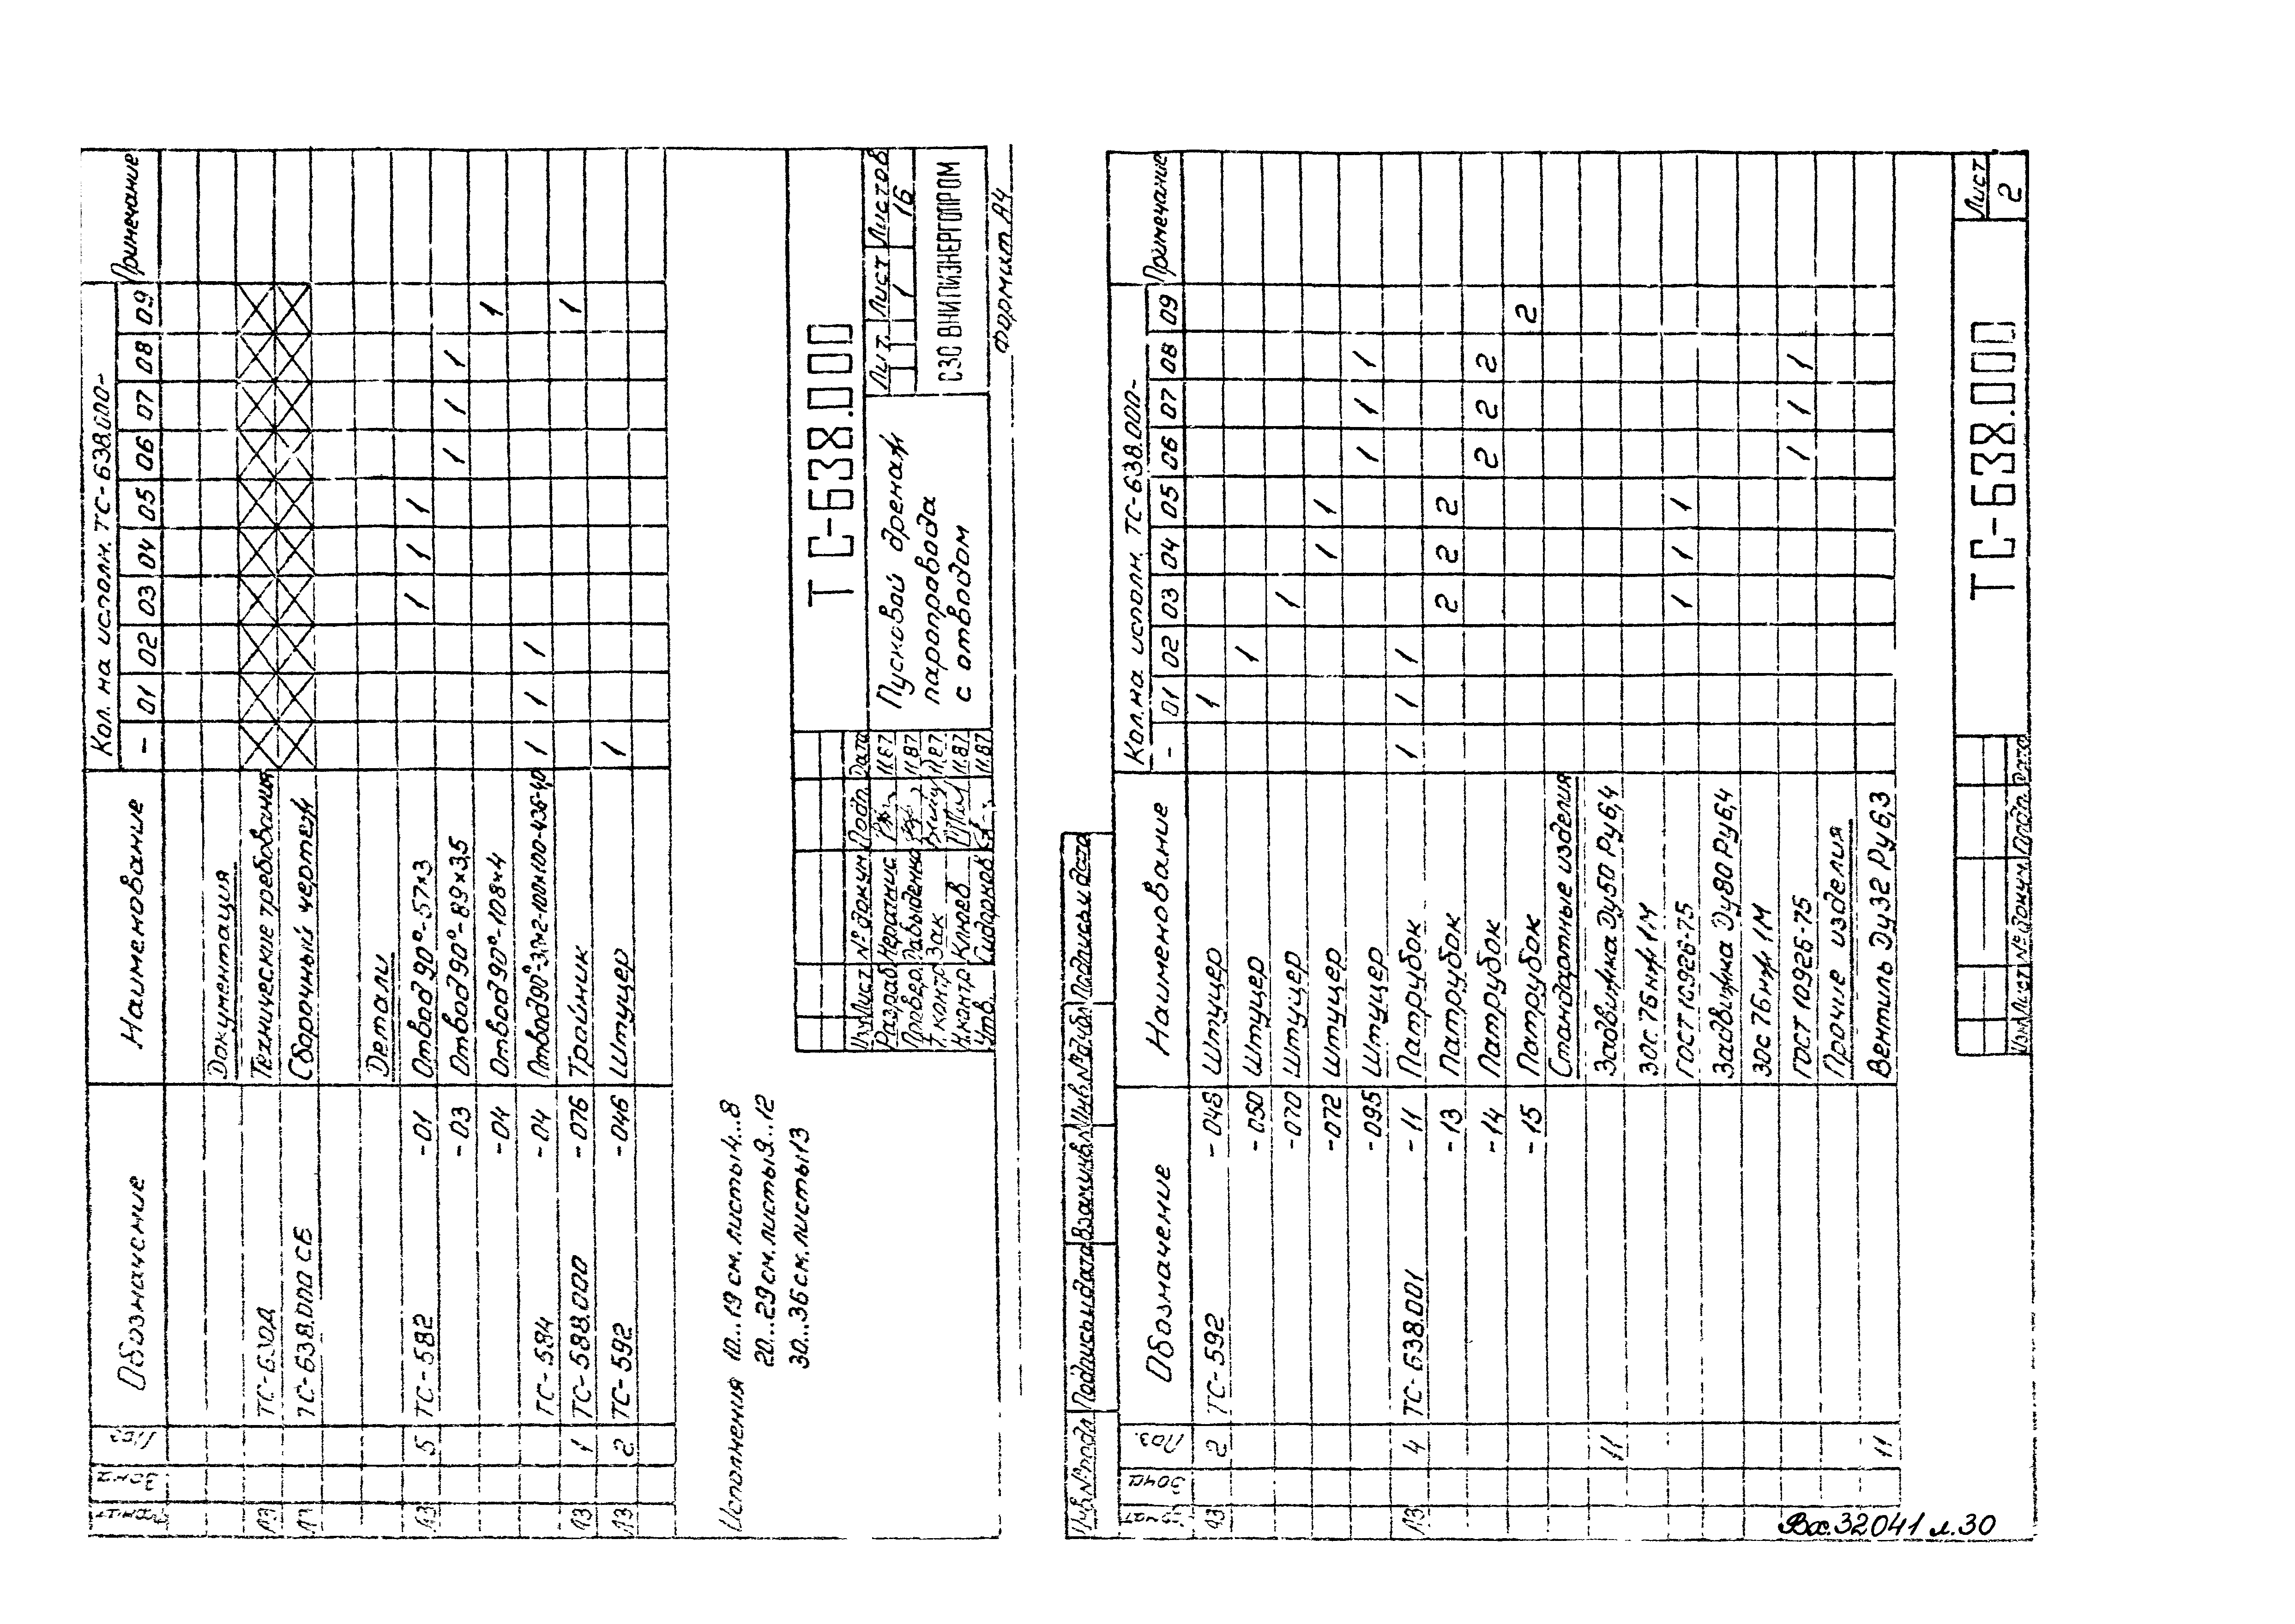 Кол. на исполн. ТС-638.000-
Обозначение Наименование - 01 02 03 04 05 06 07 08 09 Примечание
Документация
ТС-630Д Технические требования
ТС-638.000 СБ Сборочный чертеж
Детали
5 ТС-582 -01 Отвод 90°-57×3 1 1 1
-03 Отвод 90°-89×3,5 1 1 1
-04 Отвод 90°-108×4 1
ТС-584 -04 1 1 1
А3 1 ТС-588.000 -076 Тройник 1
А3 2 ТС-592 -046 Штуцер 1
Исполнения 10...19 см. листы 4...8
20...29 см. листы 9...12
30...36 см. листы 13
ТС-638.000
Изм Лист № докум. Подп. Дата
Разраб. 11.87
Провер. Давыденко 11.87
Т. контр. Зак 11.87
Н. контр. Клюев 11.87
Утв. Сидорков 11.87
Пусковой дренаж
паропровода
с отводом
Лит. Лист Листов
1 16
СЗО ВНИПИЭНЕРГОПРОМ
Формат А4
Инв. № подл. Подпись и дата Взам. инв. № Инв. № дубл. Подпись и дата
Кол. на исполн. ТС-638.000-
Зона Поз. Обозначение Наименование - 01 02 03 04 05 06 07 08 09 Примечание
А3 2 ТС-592 -048 Штуцер 1
-050 Штуцер 1
-070 Штуцер 1
-072 Штуцер 1 1
-095 Штуцер 1 1 1
А3 4 ТС-638.001 -11 Патрубок 1 1 1
-13 Патрубок 2 2 2
-14 Патрубок 2 2 2
-15 Патрубок 2
Стандартные изделия
11 Задвижка Ду50 Ру6,4
30с 76нж 1М
ГОСТ 10926-75 1 1 1
Задвижка Ду80 Ру6,4
30с 76нж 1М
ГОСТ 10926-75 1 1 1
Прочие изделия
11 Вентиль Ду32 Ру6,3
ТС-638.000
Изм Лист № докум. Подп. Дата
Лист
2
Вх. 32041 л. 30